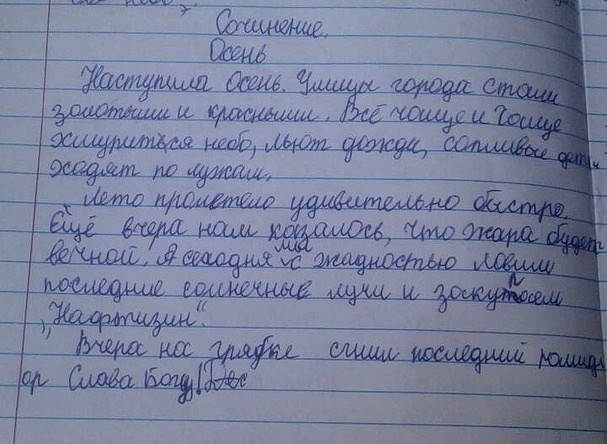 Сочинение.
Осень
Наступила Осень. Улицы города стали
золотыми и красными. Всё чаще и чаще
хмуриться небо, льют дожди, сопливые дети
ходят по лужам.
Лето пролетело удивительно быстро.
Ещё вчера нам казалось, что жара будет
вечной. А сегодня мы с жадностью ловим
последние солнечные лучи и
„Нафтизин“.
Вчера на грядке сгнил последний помид
ор Слава Богу!